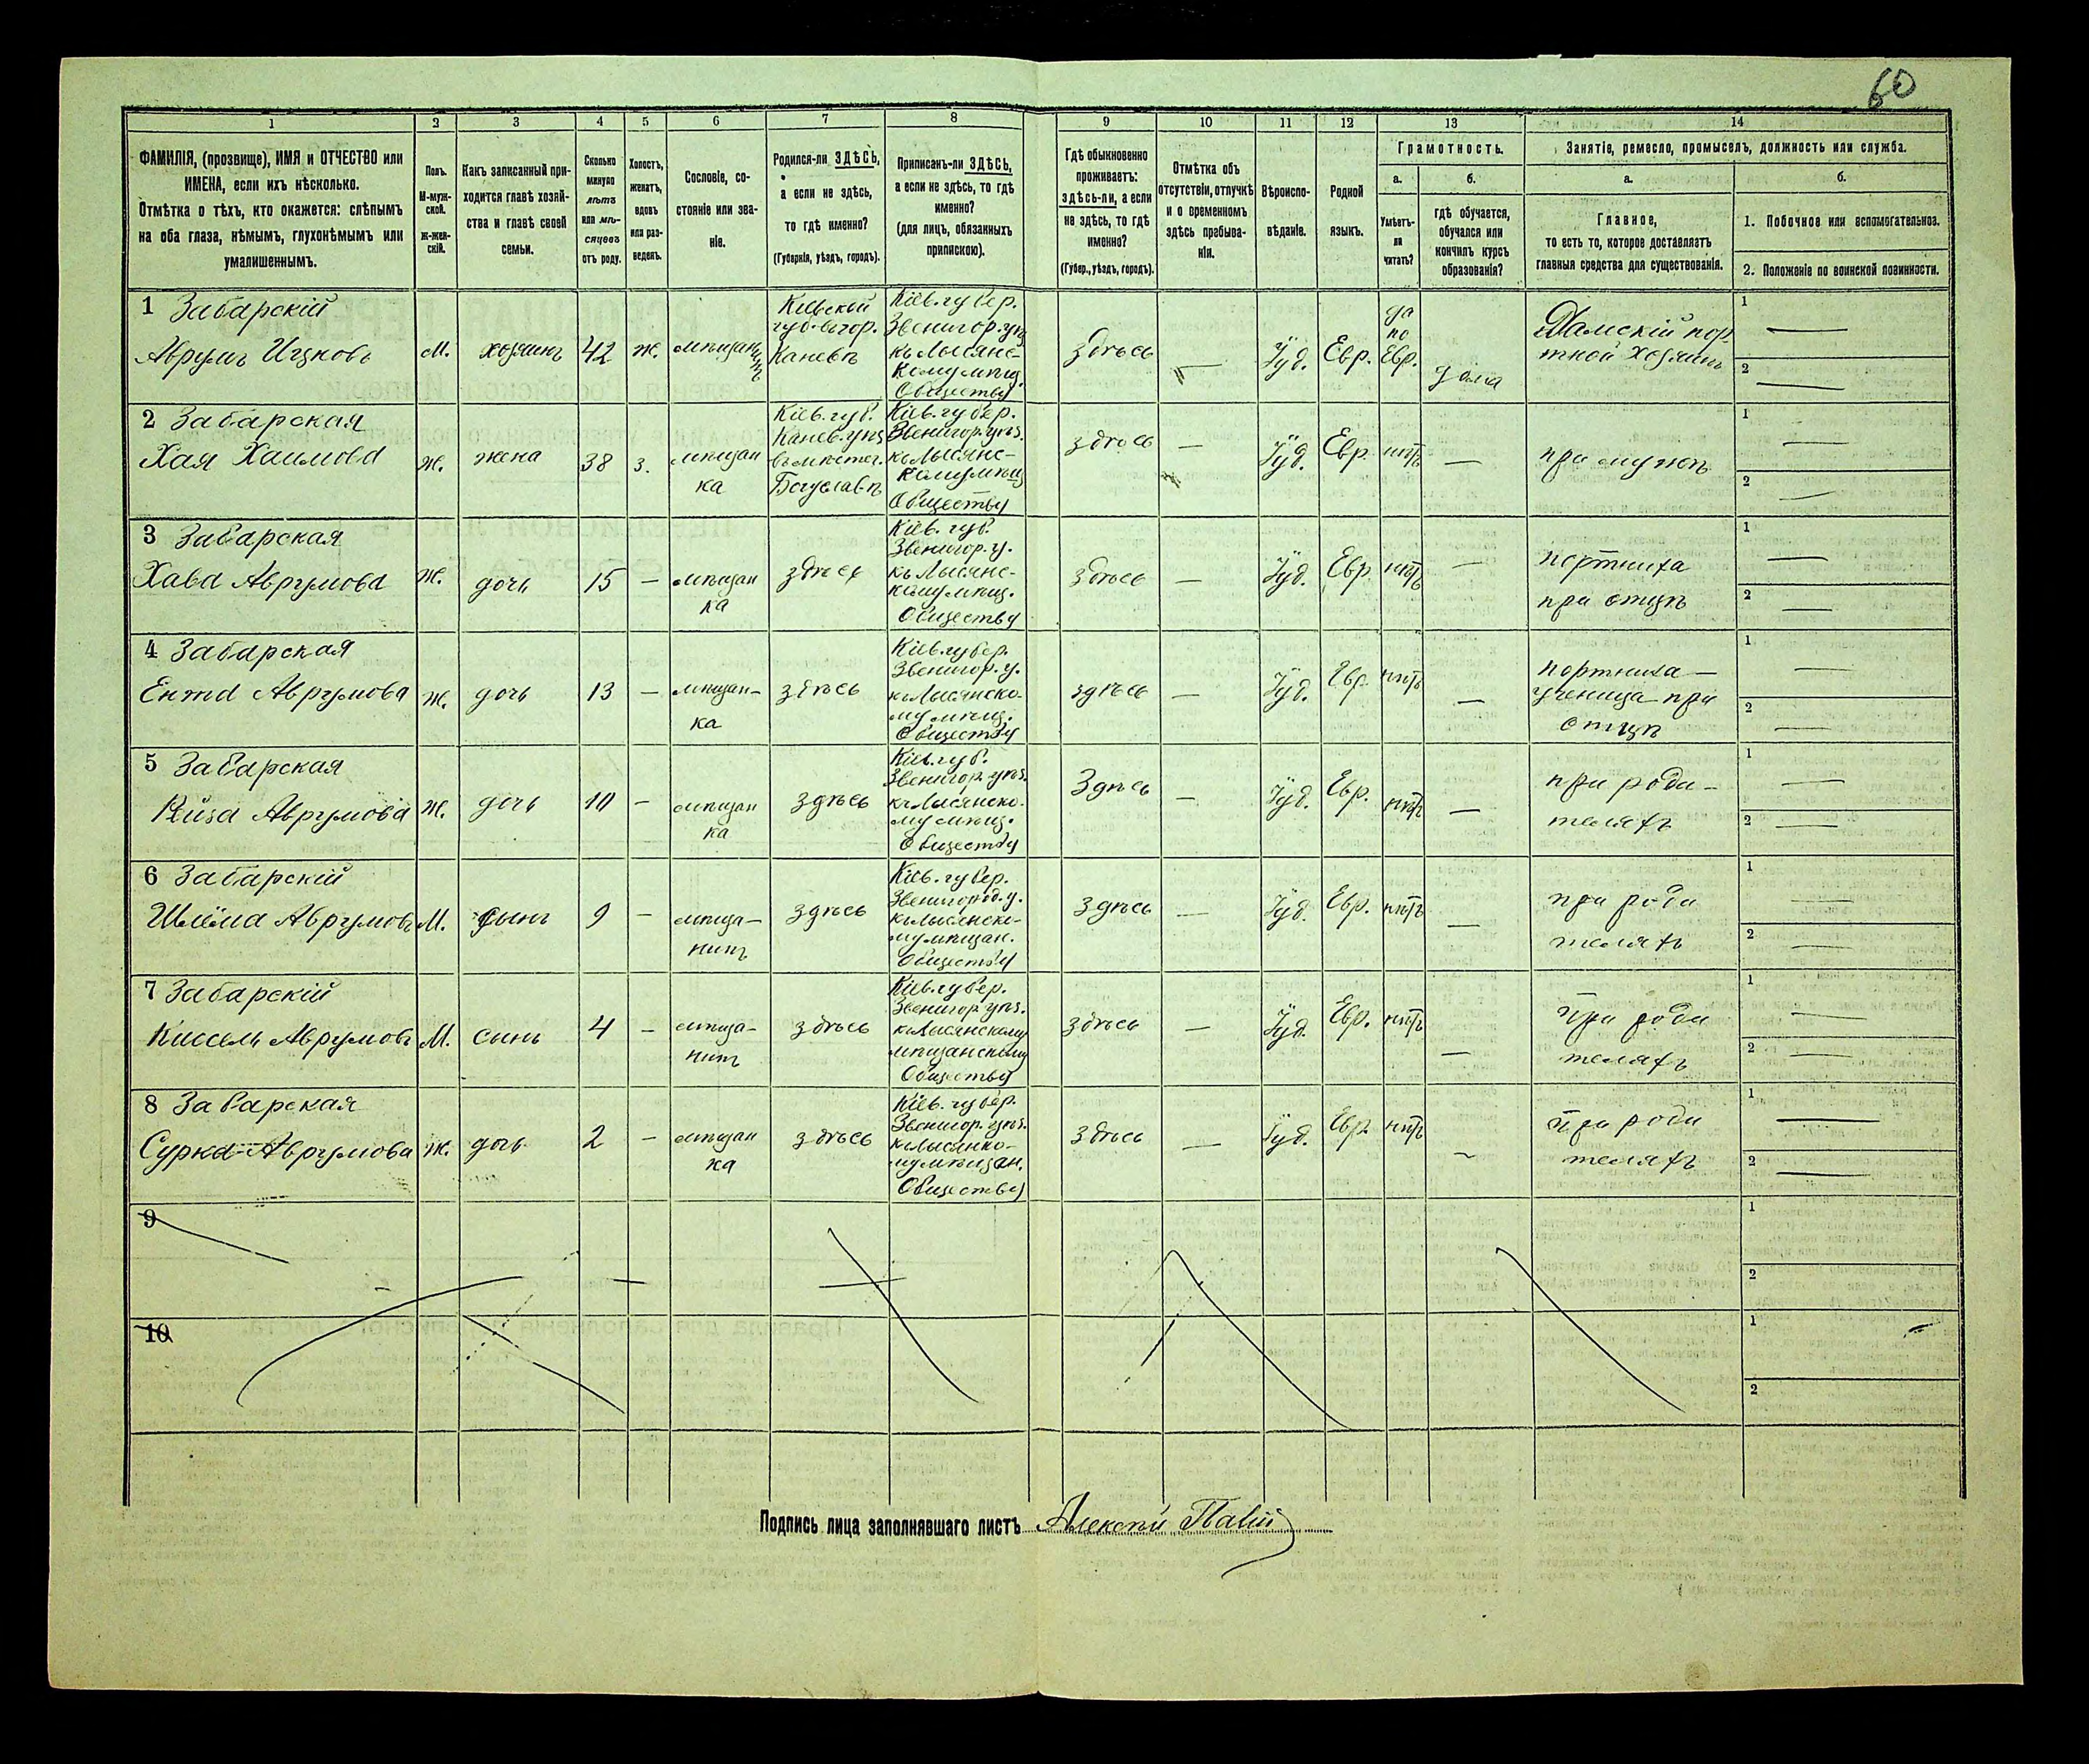 60
1 2 3 4 5 6 7 8 9 10 11 12 13 14
ФАМИЛІЯ, (прозвище), ИМЯ и ОТЧЕСТВО или
ИМЕНА, если ихъ нѣсколько.
Отмѣтка о тѣхъ, кто окажется: слѣпымъ
на оба глаза, нѣмымъ, глухонѣмымъ или
умалишеннымъ.
Полъ.
М-муж-
ской.
Ж-жен-
скій.
Какъ записанный при-
ходится главѣ хозяй-
ства и главѣ своей
семьи.
Сколько
минуло
лѣтъ
или мѣ-
сяцевъ
отъ роду.
Холостъ,
женатъ,
вдовъ
или раз-
веденъ.
Сословіе, со-
стояніе или зва-
ніе.
Родился-ли ЗДѢСЬ,
а если не здѣсь,
то гдѣ именно?
(Губернія, уѣздъ, городъ).
Приписанъ-ли ЗДѢСЬ,
а если не здѣсь, то гдѣ
именно?
(для лицъ, обязанныхъ
припискою).
Гдѣ обыкновенно
проживаетъ:
здѣсь-ли, а если
не здѣсь, то гдѣ
именно?
(Губер., уѣздъ, городъ).
Отмѣтка объ
отсутствіи, отлучкѣ
и о временномъ
здѣсь пребыва-
ніи.
Вѣроиспо-
вѣданіе.
Родной
языкъ.
Грамотность.
а.
Умѣетъ-
ли
читать?
б.
гдѣ обучается,
обучался или
кончилъ курсъ
образованія?
Занятіе, ремесло, промыселъ, должность или служба.
а.
Главное,
то есть то, которое доставляетъ
главныя средства для существованія.
б.
1. Побочное или вспомогательное.
2. Положеніе по воинской повинности.
1 Забарскій
Аврумъ Ицковъ
М.
хозяинъ
42
ж.
мѣщанинъ
Кіевской
губ. вгор.
Каневѣ
Кіев. губер.
Звенигор. уѣз
къ Лысянс-
кому мѣщ.
Обществу
Здѣсь
—
Іуд.
Евр.
да
по
Евр.
дома
Дамскій пор
тной хозяинъ
1 —
2 —
2 Забарская
Хая Хаимова
ж.
жена
38
з.
мѣщан
ка
Кіев. губ.
Канев. уѣз
въ мѣстеч.
Богуславѣ
Кіев. губер.
Звенигор. уѣз.
къ Лысянс-
кому мѣщ
Обществу
здѣсь
—
Іуд.
Евр
нѣтъ
—
при мужѣ
1 —
2 —
3 Забарская
Хава Аврумова
ж.
дочь
15
—
мѣщан
ка
здѣсь
Кіев. губ.
Звенигор. у.
къ Лысянс-
кому мѣщ.
Обществу
здѣсь
—
Іуд.
Евр
нѣтъ
—
портниха
при отцѣ
1 —
2 —
4 Забарская
Ента Аврумова
ж.
дочь
13
—
мѣщан-
ка
здѣсь
Кіев. губер.
Звенигор. у.
къ Лысянско-
му мѣщ.
Обществу
здѣсь
—
Іуд.
Евр
нѣтъ
—
портниха —
ученица при
отцѣ
1 —
2 —
5 Забарская
Рейза Аврумова
ж.
дочь
10
—
мѣщан
ка
здѣсь
Кіев. губ.
Звенигор. уѣз.
къ Лысянско-
му мѣщ.
Обществу
Здѣсь
—
Іуд.
Евр.
нѣтъ
—
при роди-
теляхъ
1 —
2 —
6 Забарскій
Шлёма Аврумовъ
М.
сынъ
9
—
мѣща-
нинъ
здѣсь
Кіев. губер.
Звенигород. у.
къ Лысянско-
му мѣщан.
Обществу
здѣсь
—
Іуд.
Евр.
нѣтъ
—
при роди
теляхъ
1 —
2 —
7 Забарскій
Киссель Аврумовъ
М.
сынъ
4
—
мѣща-
нинъ
здѣсь
Кіев. губер.
Звенигор. уѣз.
къ Лысянскому
мѣщанскому
Обществу
здѣсь
—
Іуд.
Евр.
нѣтъ
—
при роди
теляхъ
1 —
2 —
8 Забарская
Сурка Аврумова
ж.
дочь
2
—
мѣщан
ка
здѣсь
Кіев. губер.
Звенигор. уѣз.
къ Лысянко-
му мѣщан.
Обществу
здѣсь
—
Іуд.
Евр.
нѣтъ
—
при роди
теляхъ
1 —
2 —
9
1
2
10
1
2
Подпись лица заполнявшаго листъ Алексѣй